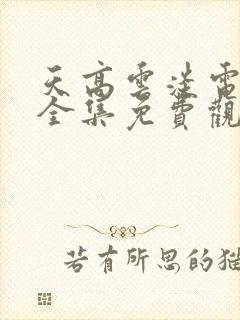 天高雲淡電
全集免費觀
若有所思的猫